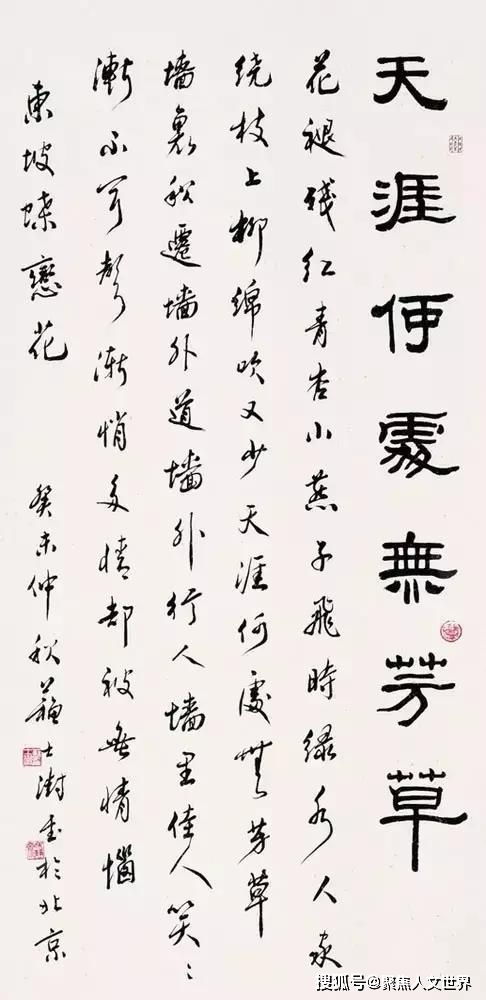 天涯何處無芳草
花褪残红青杏小燕子飛時緑水人家
绕枝上柳綿吹又少天涯何處無芳草
墙裏秋遷墙外道墙外行人墙里佳人笑〻
漸不聞聲漸悄多情却被無情惱
東坡蝶戀花 癸未仲秋蘇士澍書於北京
搜狐号@聚焦人文世界